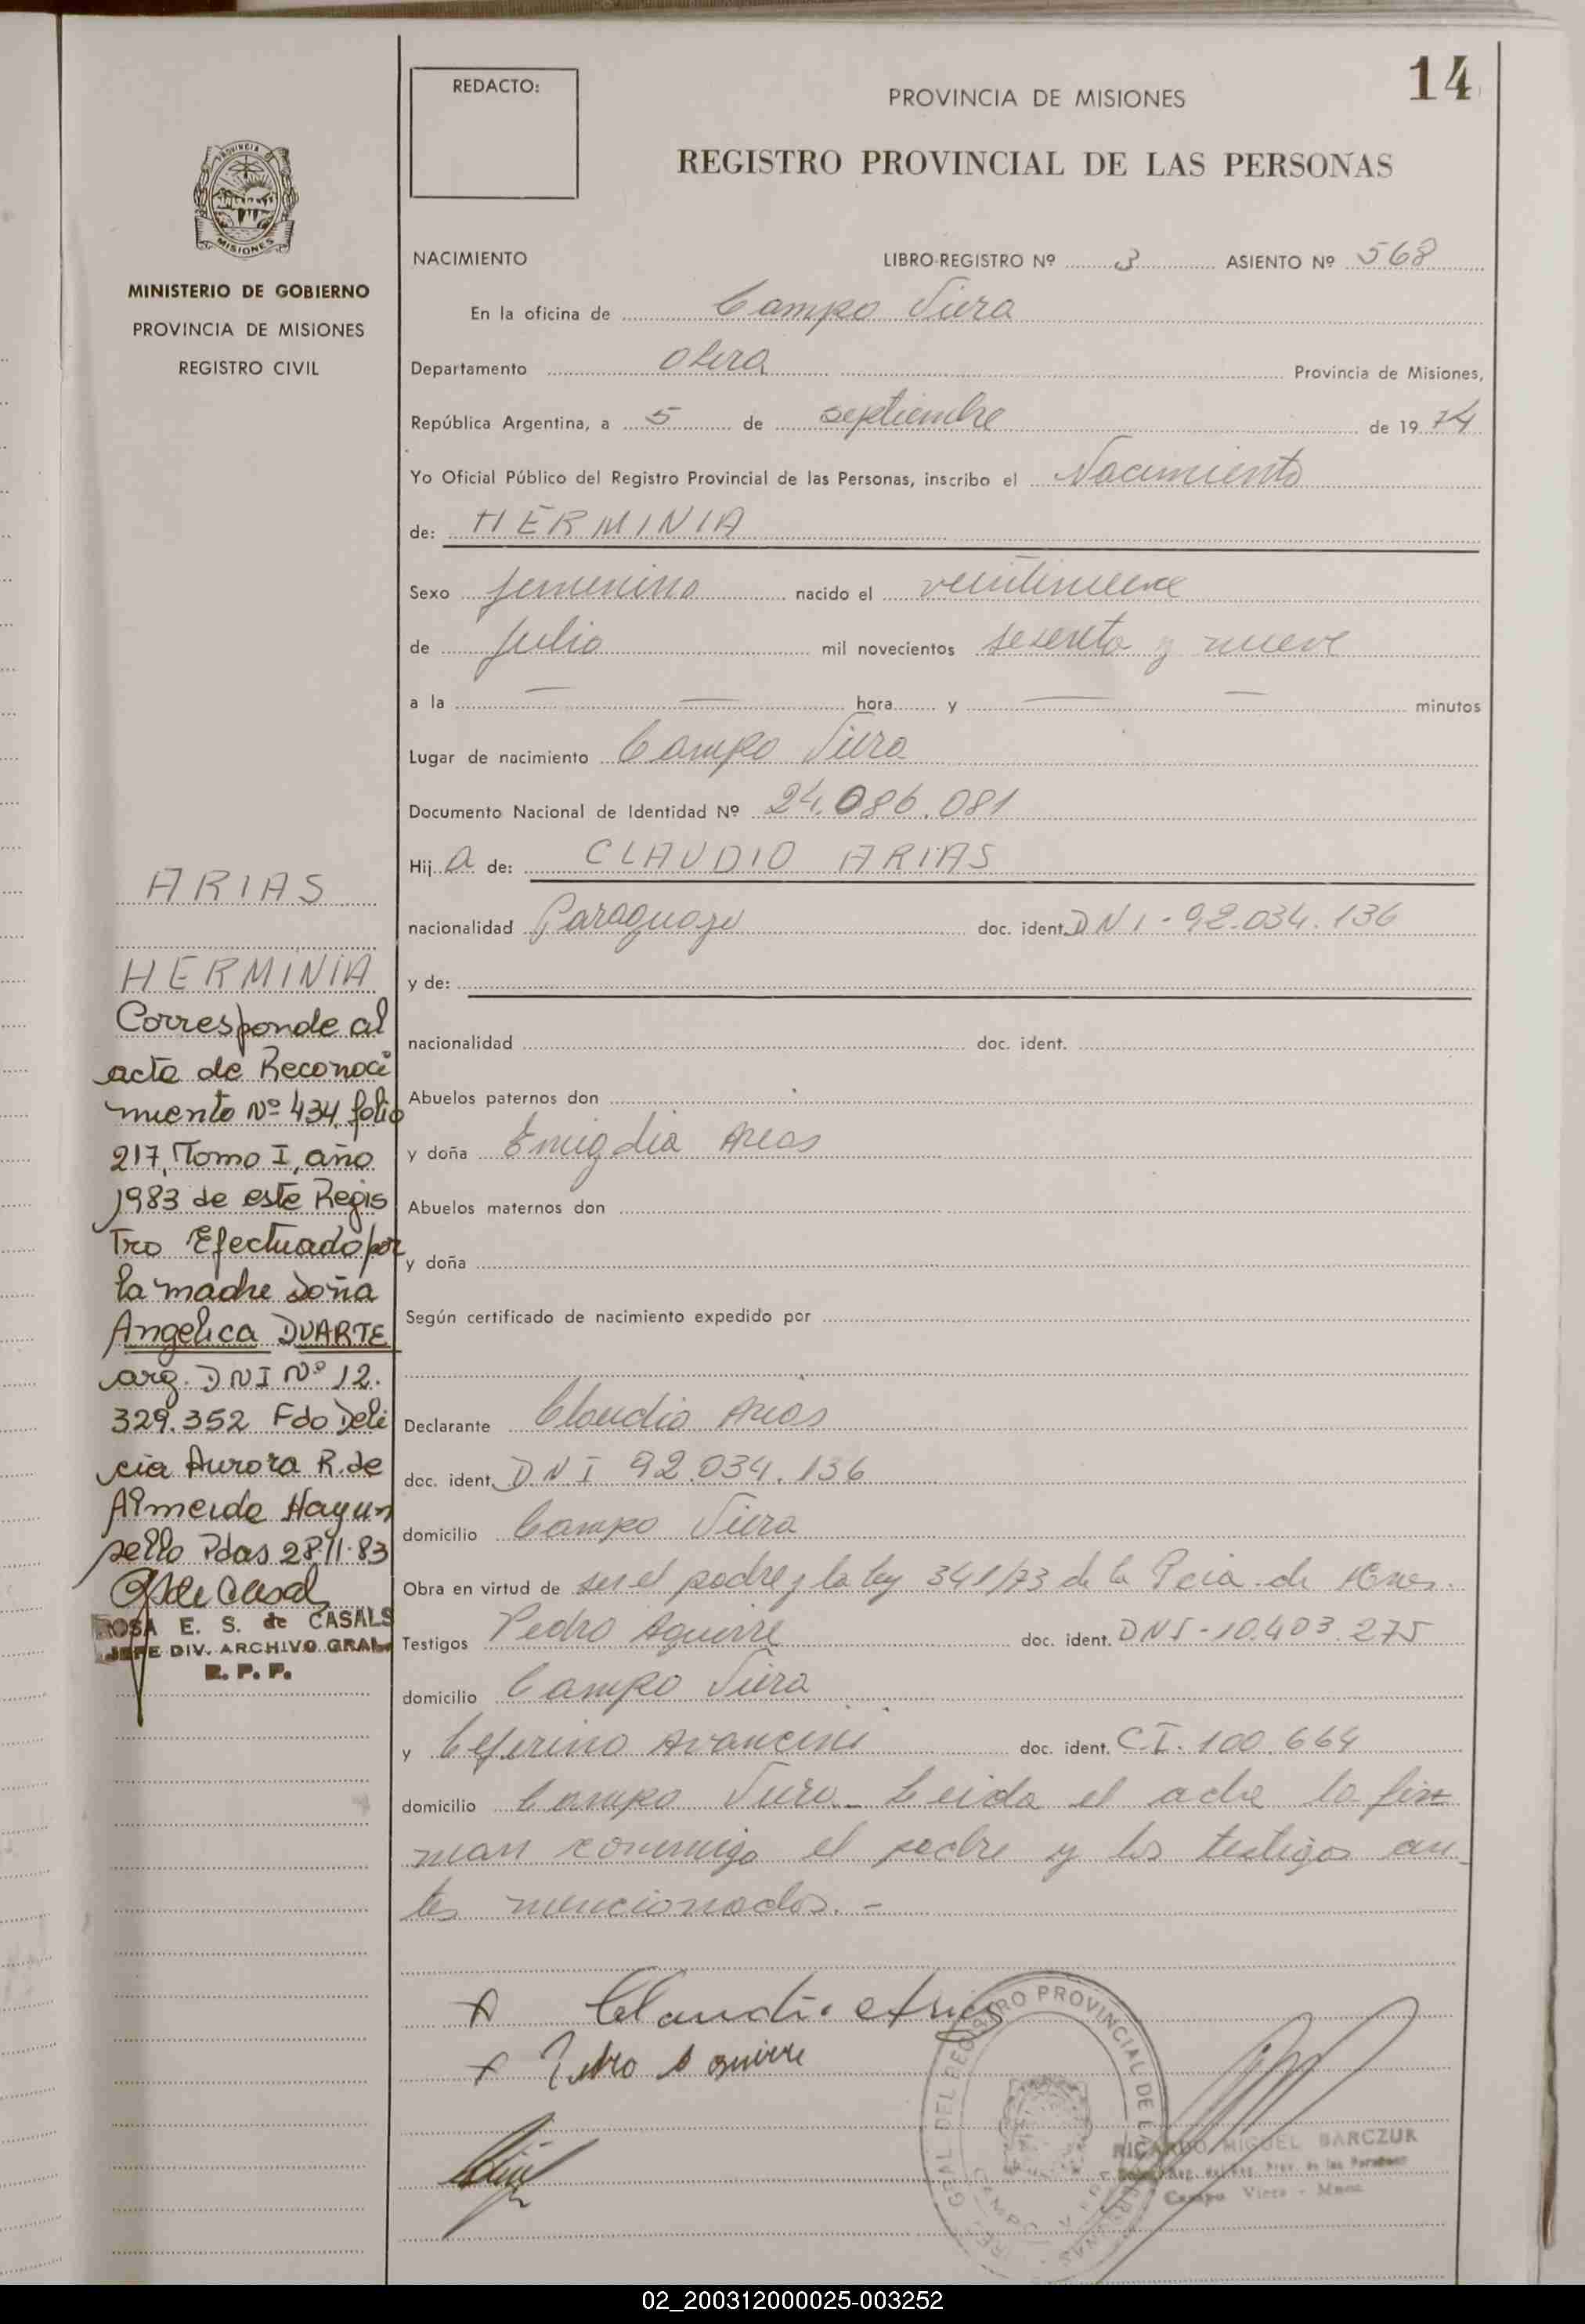 14
REDACTO:
PROVINCIA DE MISIONES
REGISTRO PROVINCIAL DE LAS PERSONAS
PROVINCIA DE
MISIONES
MINISTERIO DE GOBIERNO
PROVINCIA DE MISIONES
REGISTRO CIVIL
NACIMIENTO LIBRO-REGISTRO Nº 3 ASIENTO Nº 568
En la oficina de Campo Viera
Departamento Obera Provincia de Misiones,
República Argentina, a 5 de septiembre de 1974
Yo Oficial Público del Registro Provincial de las Personas, inscribo el Nacimiento
de: HERMINIA
Sexo femenino nacido el veintinueve
de Julio mil novecientos sesenta y nueve
a la — — hora y — — minutos
Lugar de nacimiento Campo Viera
Documento Nacional de Identidad Nº 24.086.081
Hij a de: CLAUDIO ARIAS
nacionalidad Paraguayo doc. ident. DNI - 92.034.136
y de:
nacionalidad doc. ident.
Abuelos paternos don
y doña Emigdia Arias
Abuelos maternos don
y doña
Según certificado de nacimiento expedido por
Declarante Claudio Arias
doc. ident. DNI 92.034.136
domicilio Campo Viera
Obra en virtud de ser el padre y la ley 341/73 de la Pcia. de
Testigos Pedro Aguirre doc. ident. DNI - 10.403.275
domicilio Campo Viera
y Ceferino Avancini doc. ident. C.I. 100.664
domicilio Campo Viera. Leida el acta la fir
man conmigo el padre y los testigos an
tes mencionados. -
Claudio Arias
Pedro Aguirre
GRAL DEL REGISTRO PROVINCIAL DE LAS PERSONAS
CAMPO VIERA
RICARDO MIGUEL BARCZUK
Campo Viera - Mnes
ARIAS
HERMINIA
Corresponde al
acta de Reconoci
miento Nº 434, folio
217, Tomo I, año
1983 de este Regis
tro Efectuado por
la madre Doña
Angelica DUARTE
arg. DNI Nº 12.
329.352 Fdo Deli
cia Aurora R. de
Almeida Hay un
sello Pdas 28.11.83
ROSA E. S. de CASALS
JEFE DIV. ARCHIVO GRAL
R. P. P.
02_200312000025-003252